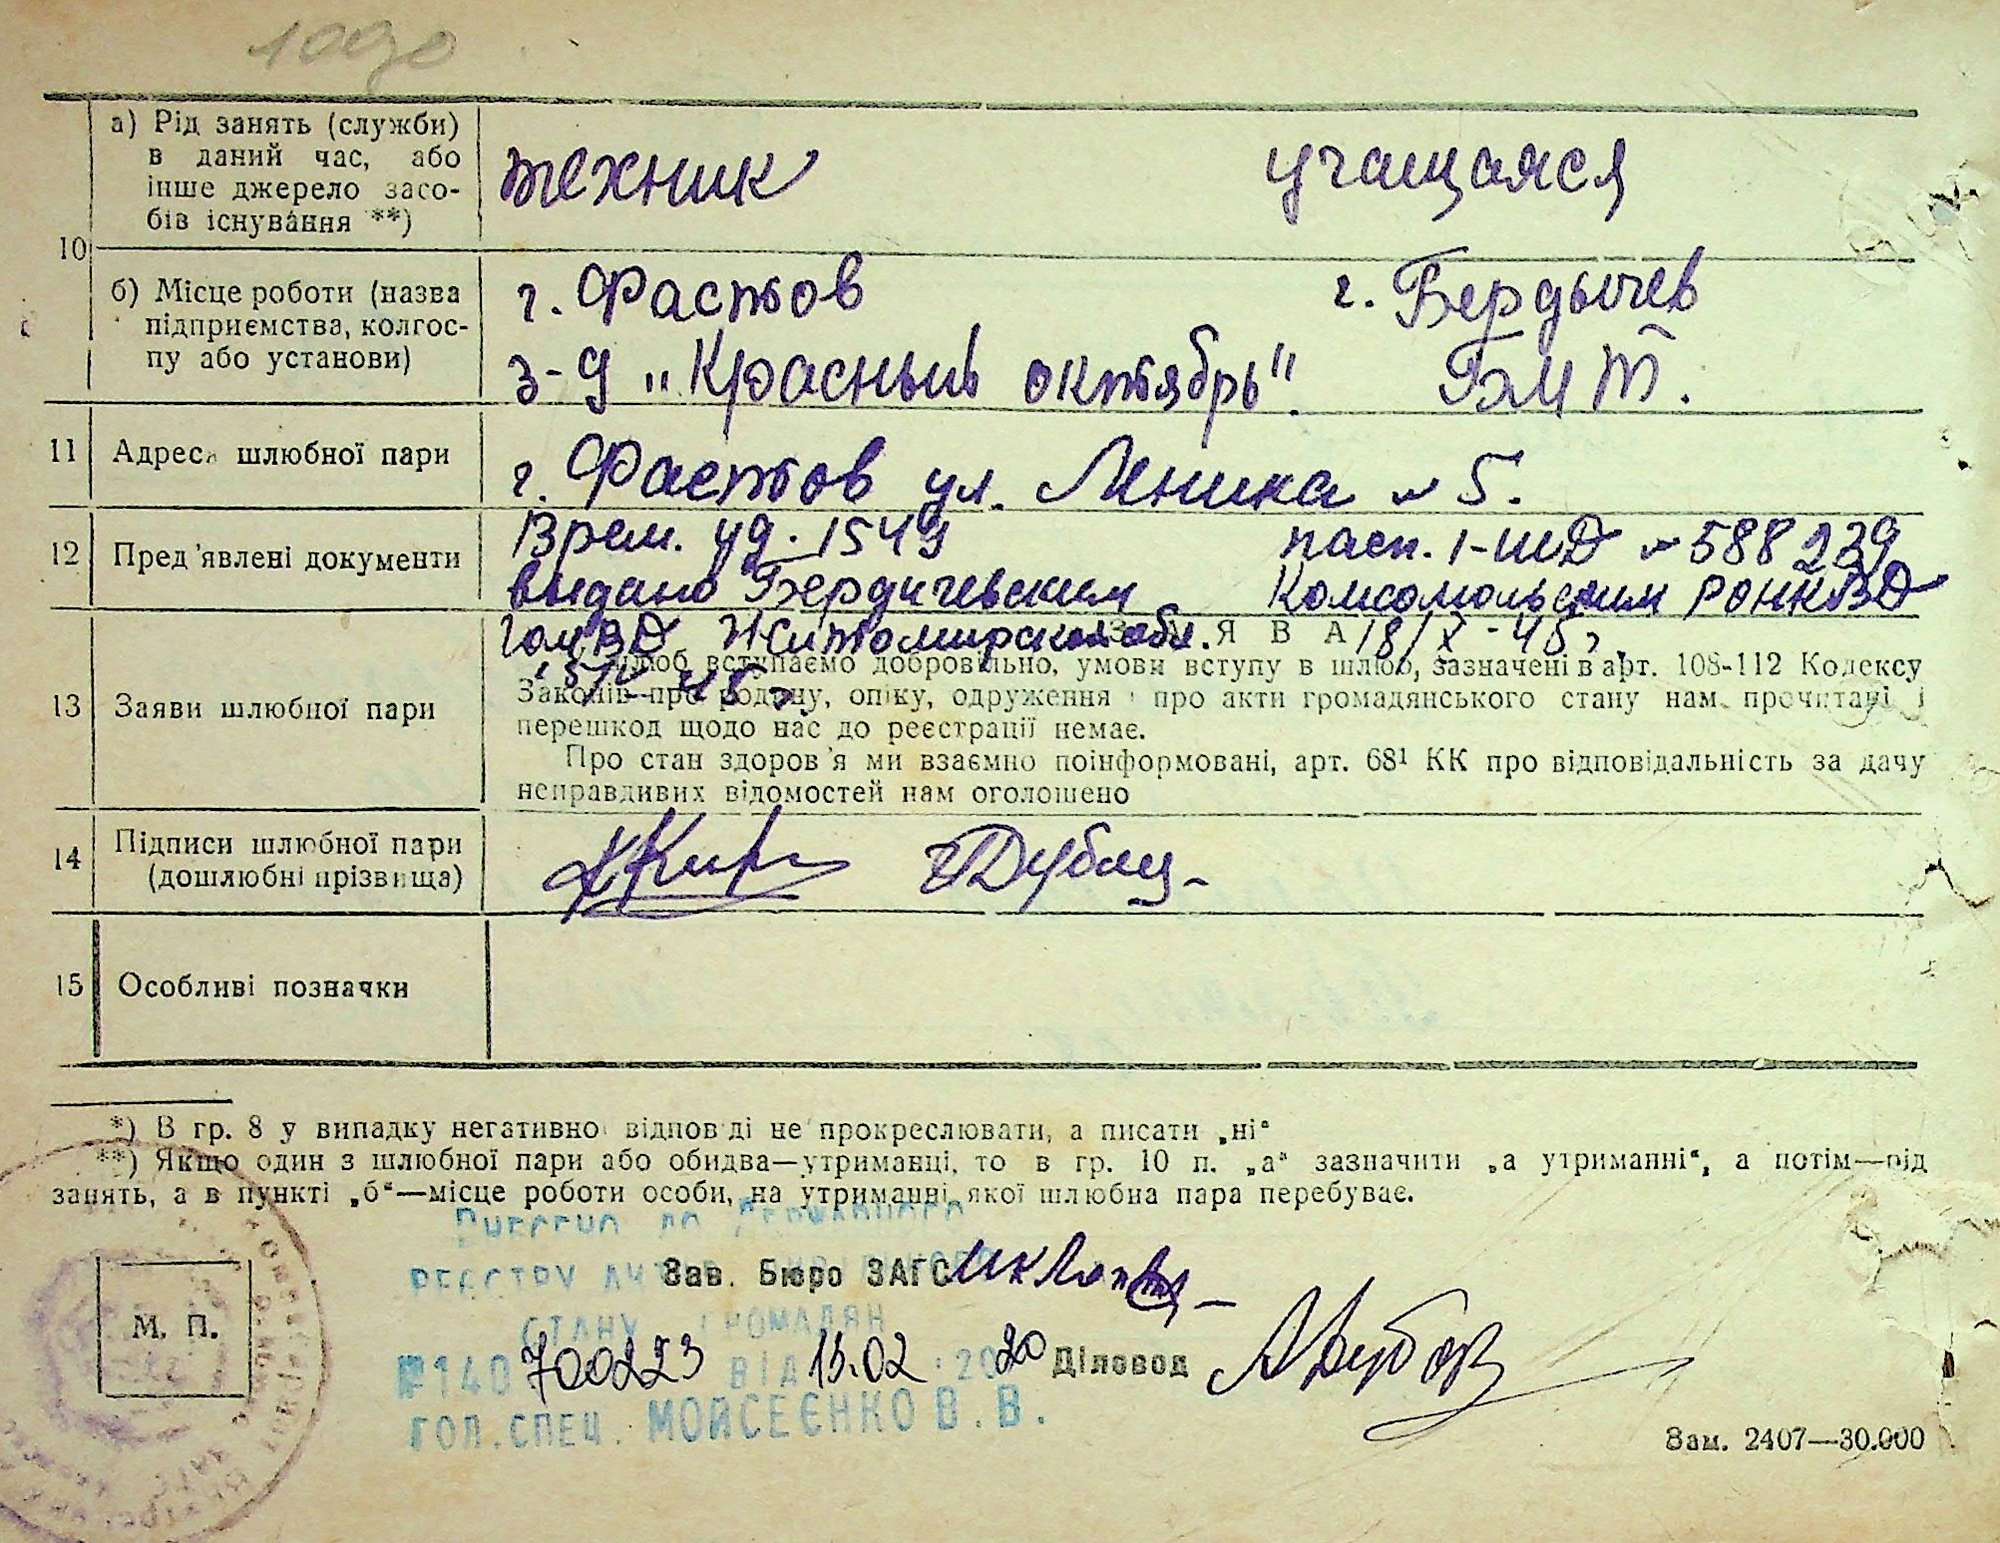 1090
10
а) Рід занять (служби)
в даний час, або
інше джерело засо-
бів існування **)
техник учащаяся
б) Місце роботи (назва
підприємства, колгос-
пу або установи)
г. Фастов г. Бердычев
з-д „Красный октябрь". БМТ.
11 Адреса шлюбної пари
г. Фастов ул. Ленина № 5.
12 Пред'явлені документи
Врем. уд. 1549 пасп. 1-ШД № 588239
выдано Бердичевским Комсомольским РОНКВД
ГомВД Житомирской обл. 18/X-45г
ЗАЯВА
13 Заяви шлюбної пари
шлюб вступаємо добровільно, умови вступу в шлюб, зазначені в арт. 108-112 Кодексу
Законів про родину, опіку, одруження і про акти громадянського стану нам прочитані і
перешкод щодо нас до реєстрації немає.
Про стан здоров'я ми взаємно поінформовані, арт. 68¹ КК про відповідальність за дачу
неправдивих відомостей нам оголошено
14 Підписи шлюбної пари
(дошлюбні прізвища)
15 Особливі позначки
*) В гр. 8 у випадку негативної відповіді не прокреслювати, а писати „ні“
**) Якщо один з шлюбної пари або обидва—утриманці, то в гр. 10 п. „а“ зазначити „а утриманні“, а потім—рід
занять, а в пункті „б“—місце роботи особи, на утриманні якої шлюбна пара перебуває.
ВНЕСЕНО ДО ДЕРЖАВНОГО
РЕЄСТРУ АКТІВ ЦИВІЛЬНОГО
Зав. Бюро ЗАГС
СТАНУ ГРОМАДЯН
М. П.
№140 700223 ВІД 13.02.2020 Діловод
ГОЛ.СПЕЦ. МОЙСЕЄНКО В.В.
Зам. 2407—30.000